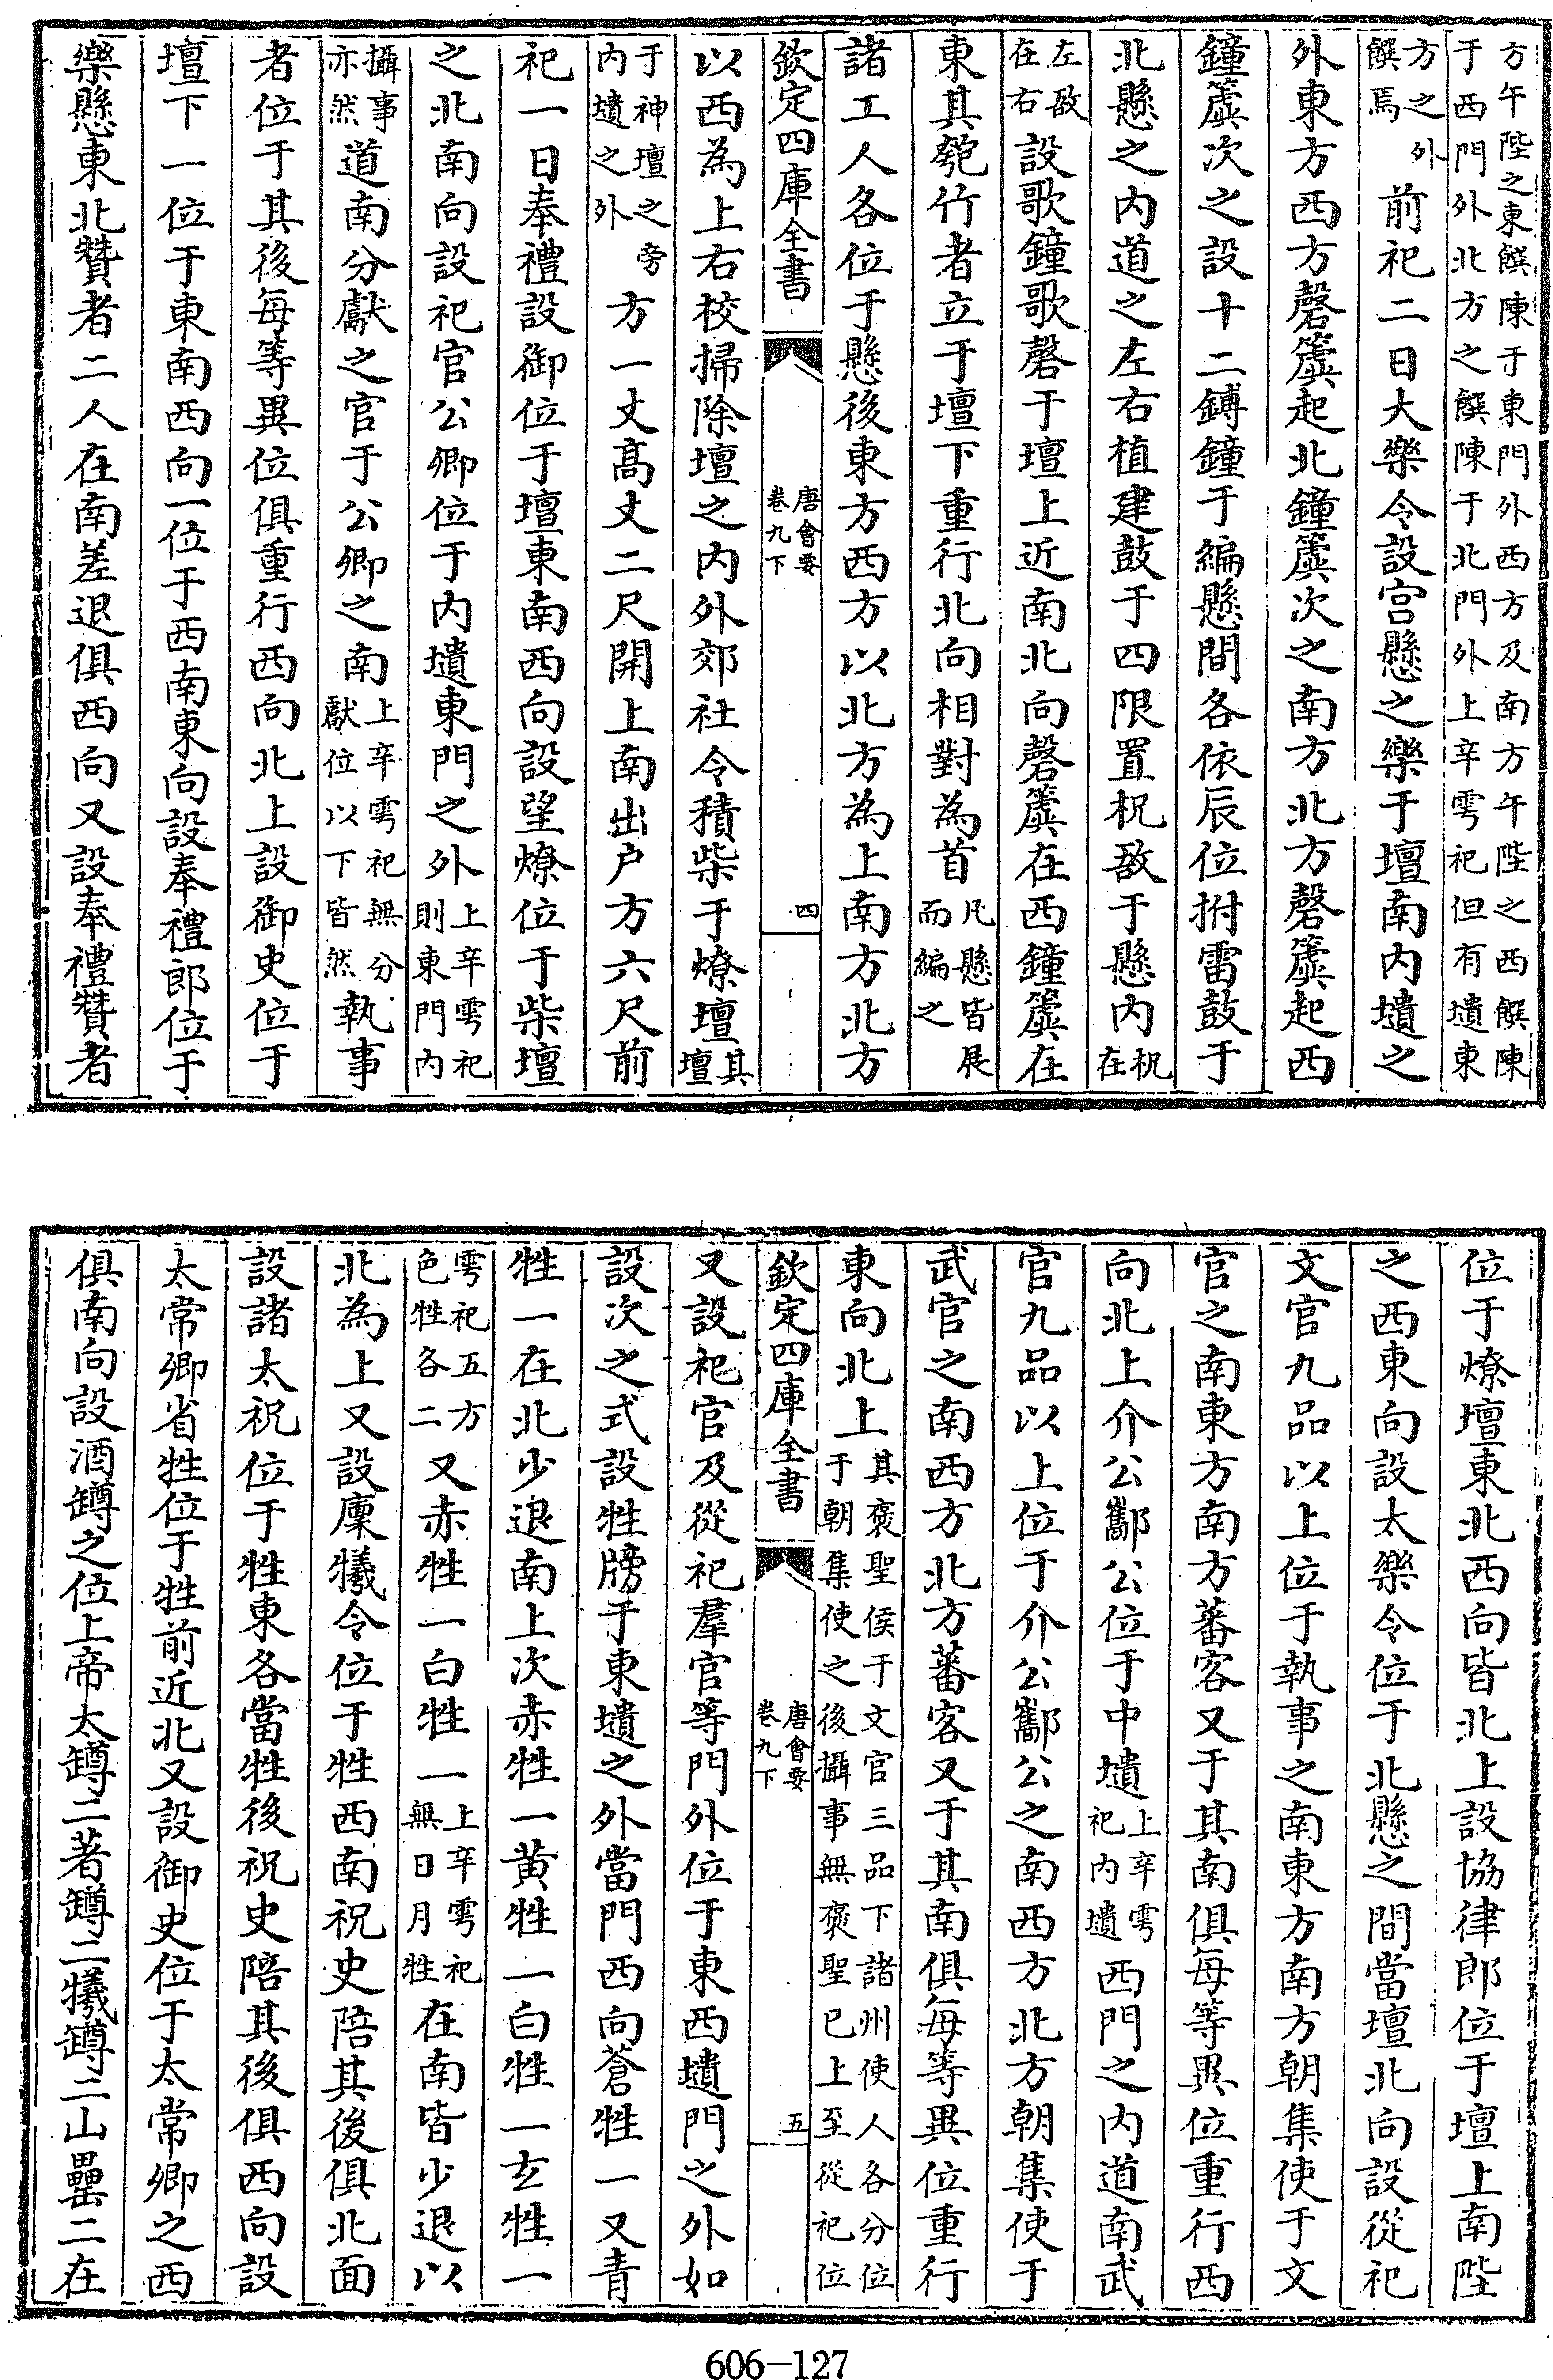 方午陛之東饌陳于東門外西方及南方午陛之西饌陳
于西門外北方之饌陳于北門外上辛雩祀但有壝東
方之外饌焉前祀二日大樂令設宫懸之樂于壇南内壝之
外東方西方磬簴起北鐘簴次之南方北方磬簴起西
鐘簴次之設十二鎛鐘于編懸間各依辰位拊雷鼓于
北懸之内道之左右植建鼓于四限置柷敔于懸内柷在
左敔在右設歌鐘歌磬于壇上近南北向磬簴在西鐘簴在
東其匏竹者立于壇下重行北向相對為首凡懸皆展而編之
諸工人各位于懸後東方西方以北方為上南方北方
欽定四庫全書 唐會要卷九下 四
以西為上右校掃除壇之内外郊社令積柴于燎壇其壇
于神壇之旁内壝之外方一丈髙丈二尺開上南出户方六尺前
祀一日奉禮設御位于壇東南西向設望燎位于柴壇
之北南向設祀官公卿位于内壝東門之外上辛雩祀則東門内
攝事亦然道南分獻之官于公卿之南上辛雩祀無分獻位以下皆然執事
者位于其後每等異位俱重行西向北上設御史位于
壇下一位于東南西向一位于西南東向設奉禮郎位于
樂懸東北贊者二人在南差退俱西向又設奉禮贊者
位于燎壇東北西向皆北上設協律郎位于壇上南陛
之西東向設太樂令位于北懸之間當壇北向設從祀
文官九品以上位于執事之南東方南方朝集使于文
官之南東方南方蕃客又于其南俱每等異位重行西
向北上介公酅公位于中壝上辛雩祀内壝西門之内道南武
官九品以上位于介公酅公之南西方北方朝集使于
武官之南西方北方蕃客又于其南俱每等異位重行
東向北上其褒聖侯于文官三品下諸州使人各分位于朝集使之後攝事無褒聖已上至從祀位
欽定四庫全書 唐會要卷九下 五
又設祀官及從祀羣官等門外位于東西壝門之外如
設次之式設牲牓于東壝之外當門西向蒼牲一又青
牲一在北少退南上次赤牲一黄牲一白牲一玄牲一
雩祀五方色牲各二又赤牲一白牲一上辛雩祀無日月牲在南皆少退以
北為上又設廩犧令位于牲西南祝史陪其後俱北面
設諸太祝位于牲東各當牲後祝史陪其後俱西向設
太常卿省牲位于牲前近北又設御史位于太常卿之西
俱南向設酒罇之位上帝太罇二著罇二犧罇二山罍二在
606-127